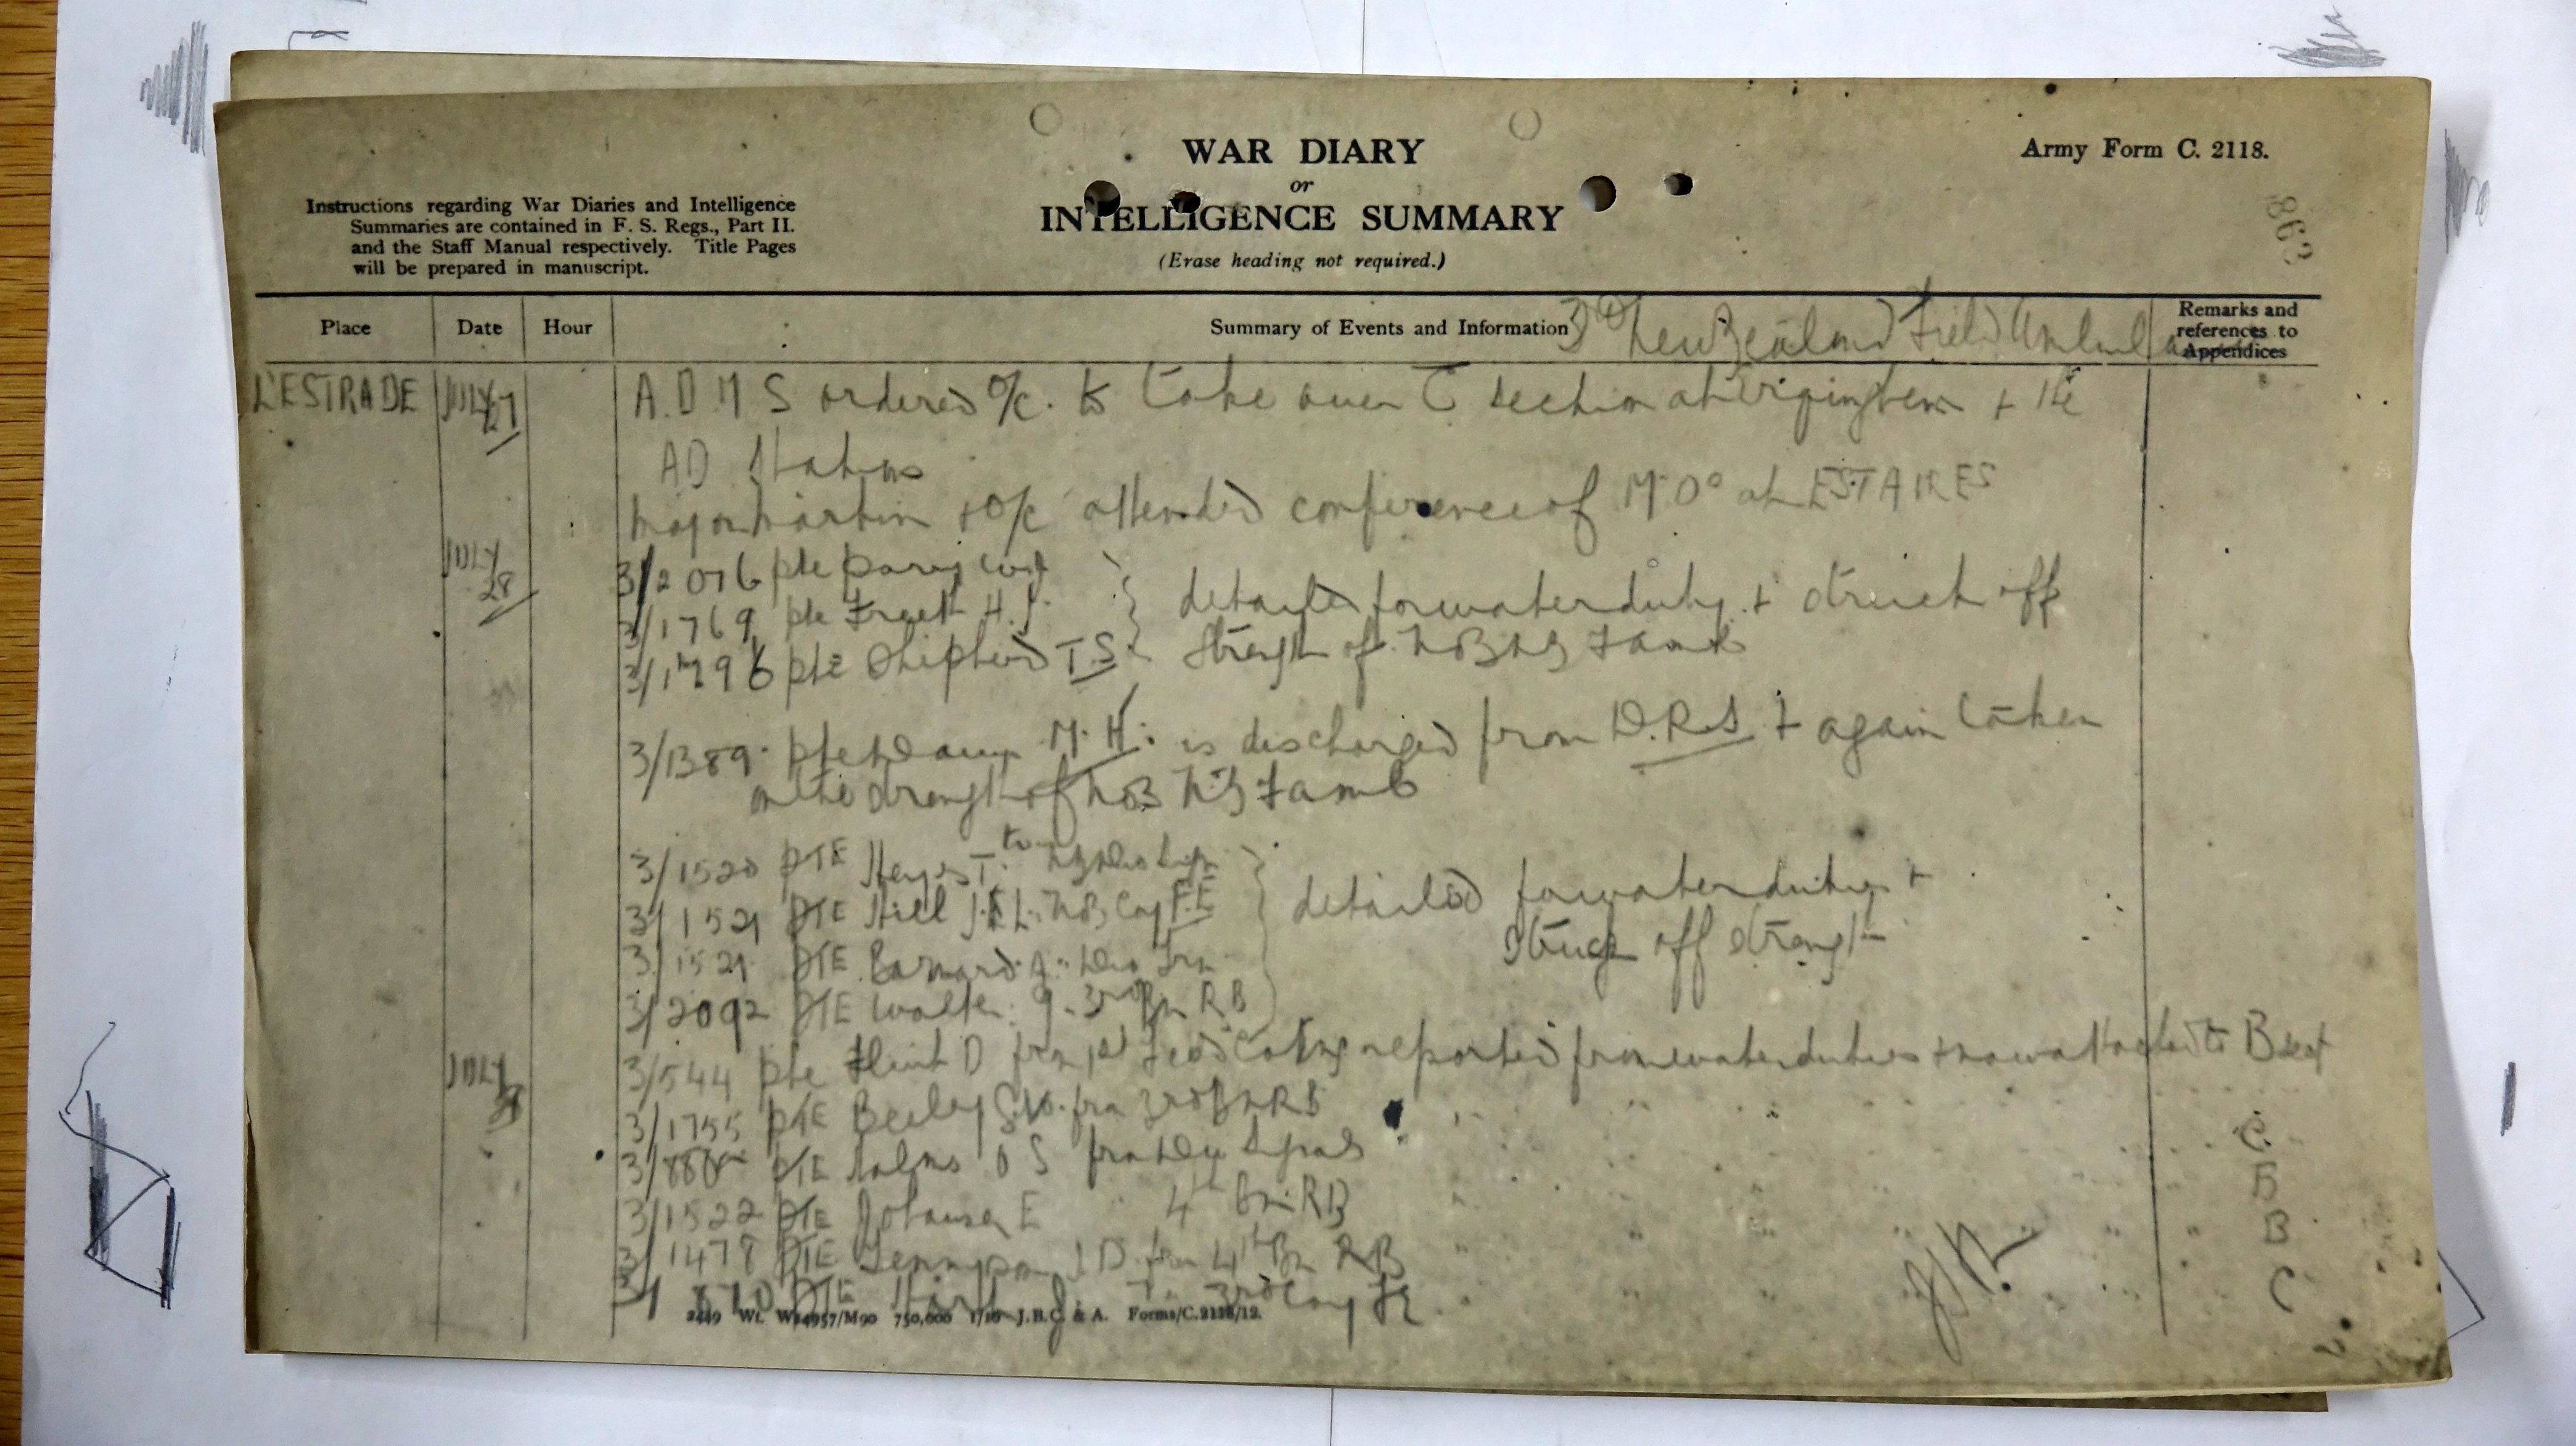 WAR DIARY
or
INTELLIGENCE SUMMARY
(Erase heading not required.)
Army Form C. 2118.
Instructions regarding War Diaries and Intelligence
Summaries are contained in F. S. Regs., Part II.
and the Staff Manual respectively. Title Pages
will be prepared in manuscript.
863
3rd New Zealand Field Ambulance
Place Date Hour Summary of Events and Information Remarks and references to Appendices
L'ESTRADE JULY 27 A.D M S ordered o/c. to take over C section at Erquinghem + the
AD Stations
Major Martin + O/C attended conference of M.Os at ESTAIRES
JULY 28 3/2076 pte
3/1769 pte H.J. detailed for water duty + struck off
3/1796 pte Shepherd T.S strength of No 3 NZ F amb
3/1389 pte M.H. is discharged from D.R.S + again taken
on the strength of No 3 NZ F amb
3/1520 PTE Hayes T. to NZ Div
3/1521 PTE Hill No 3 Coy F.E detailed for water duty +
3/1521 PTE Barnard A. Div Trn struck off strength
3/2092 PTE Walter G. 3rd Bn RB
JULY 3/544 pte Flint D from 1st reported from water duties + now attached to B sect
3/1755 PTE Beeby S.W. from 3rd Bn RB " " " C
PTE O S from Div Signals " " " B
3/1522 PTE Johansen E 4th Bn RB " " " B
3/1478 PTE Tennyson J D from 4th Bn RB " " " C
PTE 3rd Coy FE
2449 Wt. W14957/M90 750,000 1/16 J.B.C. & A. Forms/C.2118/12.